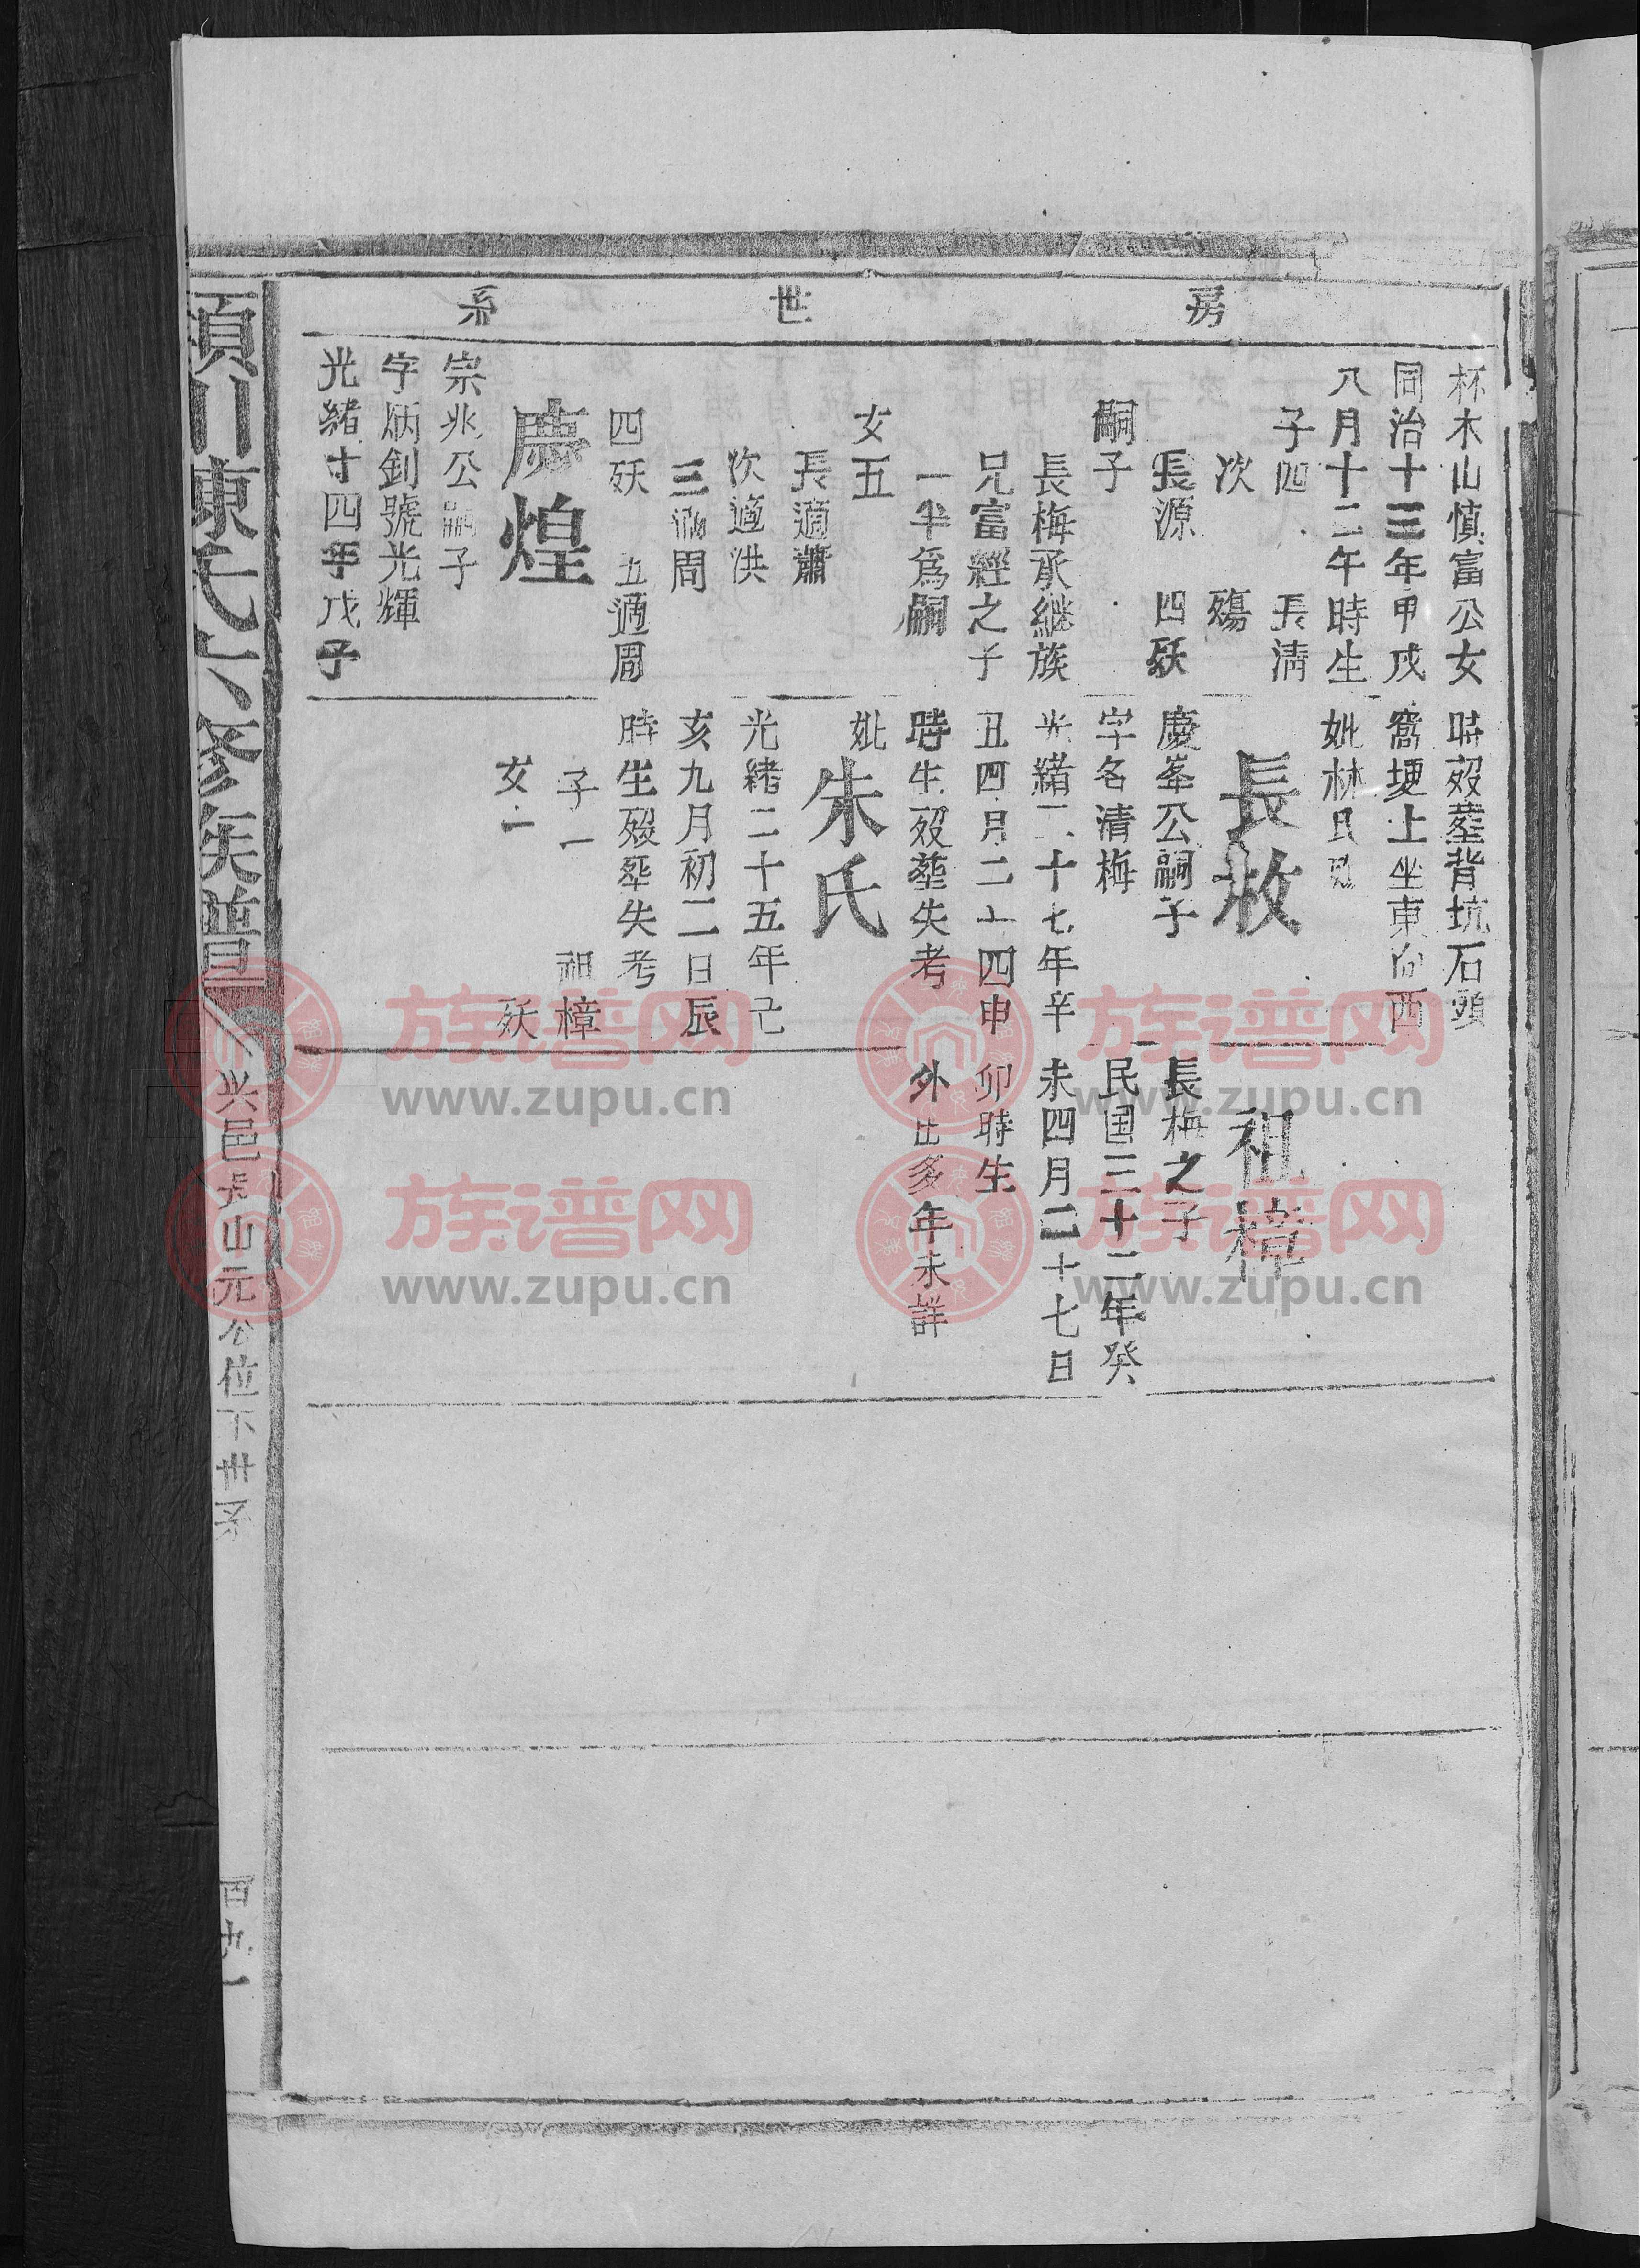 房世系
杯木山慎富公女
同治十三年甲戌
八月十二午時生
子四 長清
次殤
長源 四殀
嗣子
長梅承継族
兄富經之子
一半爲嗣
女五
長適蕭
次適洪
三適周
四殀 五適周
慶煌
宗兆公嗣子
字炳釗號光輝
光緒十四年戊子
時歿塟背坑石頭
窩埂上坐東向西
妣林氏
長枚
慶峯公嗣子
字名清梅
光緒二十七年辛
丑四月二十四申
時生歿塟失考
妣朱氏
光緒二十五年己
亥九月初二日辰
時生歿塟失考
子一 祖樟
女一 殀
祖樟
長梅之子
民国三十二年癸
未四月二十七日
卯時生
外出多年未詳
川陳氏六修族譜
兴邑 山元公位下世系
族谱网
www.zupu.cn
族谱网
www.zupu.cn
族谱网
www.zupu.cn
族谱网
www.zupu.cn